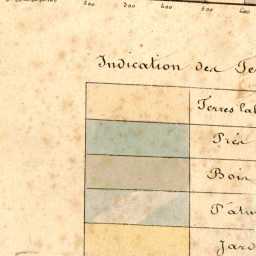 200 300 400 500 600
Indication des Te
Terres la
Prés
Bois
Patu
Jard